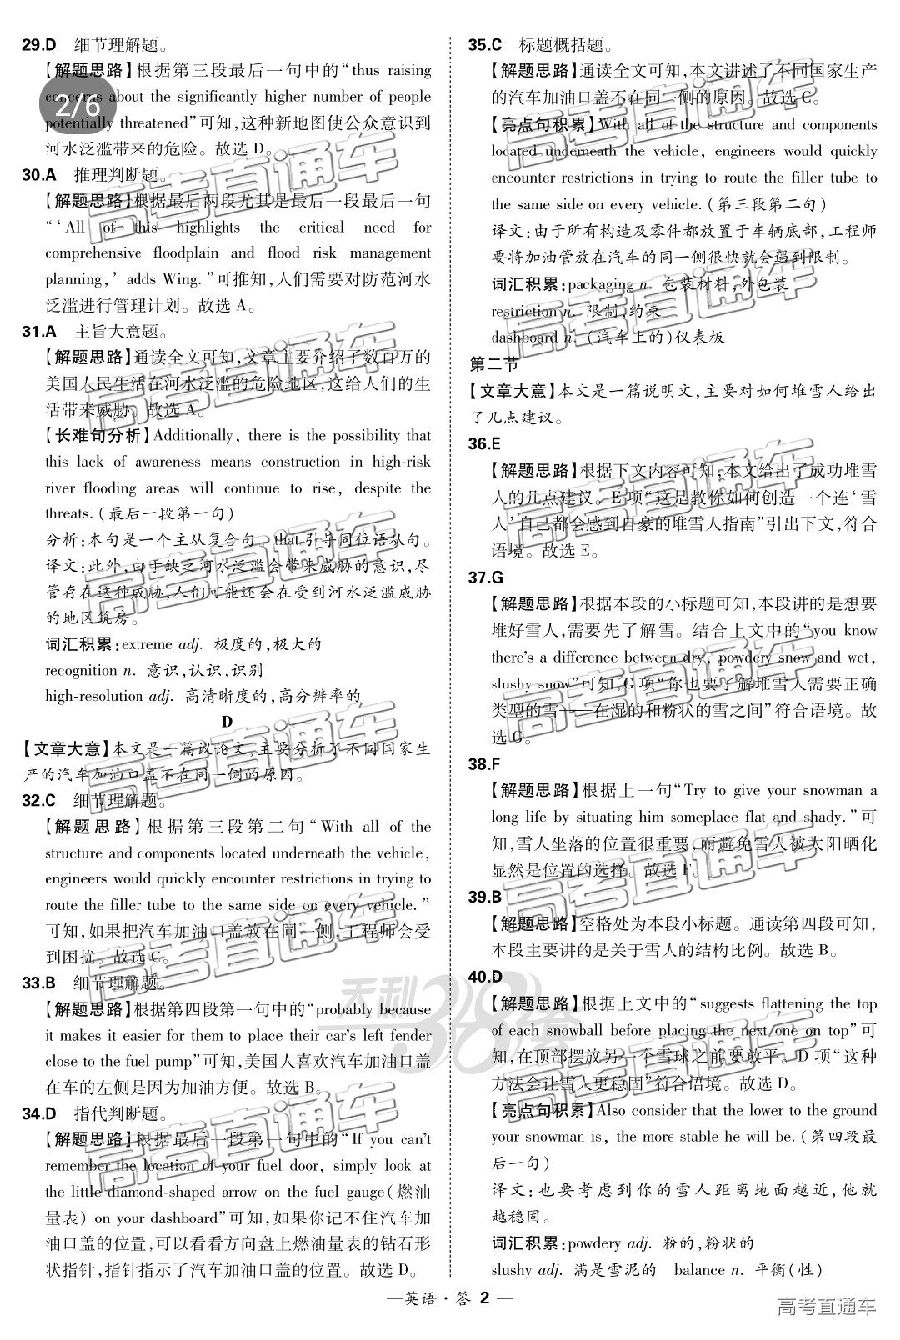 29.D 细节理解题。
【解题思路】根据第三段最后一句中的“thus raising
concerns about the significantly higher number of people
potentially threatened”可知,这种新地图使公众意识到
河水泛滥带来的危险。故选 D。
30.A 推理判断题。
【解题思路】根据最后两段尤其是最后一段最后一句
“‘All of this highlights the critical need for
comprehensive floodplain and flood risk management
planning,’ adds Wing.”可推知,人们需要对防范河水
泛滥进行管理计划。故选 A。
31.A 主旨大意题。
【解题思路】通读全文可知,文章主要介绍了数百万的
美国人民生活在河水泛滥的危险地区,这给人们的生
活带来威胁。故选 A。
【长难句分析】Additionally, there is the possibility that
this lack of awareness means construction in high-risk
river flooding areas will continue to rise, despite the
threats.(最后一段第一句)
分析:本句是一个主从复合句。that引导同位语从句。
译文:此外,由于缺乏河水泛滥会带来威胁的意识,尽
管存在这种威胁,人们可能还会在受到河水泛滥威胁
的地区筑房。
词汇积累:extreme adj. 极度的,极大的
recognition n. 意识,认识,识别
high-resolution adj. 高清晰度的,高分辨率的
D
【文章大意】本文是一篇议论文,主要分析了不同国家生
产的汽车加油口盖不在同一侧的原因。
32.C 细节理解题。
【解题思路】根据第三段第二句“With all of the
structure and components located underneath the vehicle,
engineers would quickly encounter restrictions in trying to
route the filler tube to the same side on every vehicle.”
可知,如果把汽车加油口盖放在同一侧,工程师会受
到困扰。故选 C。
33.B 细节理解题。
【解题思路】根据第四段第一句中的“probably because
it makes it easier for them to place their car's left fender
close to the fuel pump”可知,美国人喜欢汽车加油口盖
在车的左侧是因为加油方便。故选 B。
34.D 指代判断题。
【解题思路】根据最后一段第一句中的“If you can't
remember the location of your fuel door, simply look at
the little diamond-shaped arrow on the fuel gauge(燃油
量表) on your dashboard”可知,如果你记不住汽车加
油口盖的位置,可以看看方向盘上燃油量表的钻石形
状指针,指针指示了汽车加油口盖的位置。故选 D。
35.C 标题概括题。
【解题思路】通读全文可知,本文讲述了不同国家生产
的汽车加油口盖不在同一侧的原因。故选 C。
【亮点句积累】With all of the structure and components
located underneath the vehicle, engineers would quickly
encounter restrictions in trying to route the filler tube to
the same side on every vehicle.(第三段第二句)
译文:由于所有构造及零件都放置于车辆底部,工程师
要将加油管放在汽车的同一侧很快就会遇到限制。
词汇积累:packaging n. 包装材料,外包装
restriction n. 限制,约束
dashboard n. (汽车上的)仪表板
第二节
【文章大意】本文是一篇说明文,主要对如何堆雪人给出
了几点建议。
36.E
【解题思路】根据下文内容可知,本文给出了成功堆雪
人的几点建议。E 项“这是教你如何创造一个连‘雪
人’自己都会感到自豪的堆雪人指南”引出下文,符合
语境。故选 E。
37.G
【解题思路】根据本段的小标题可知,本段讲的是想要
堆好雪人,需要先了解雪。结合上文中的“you know
there's a difference between dry, powdery snow and wet,
slushy snow”可知,G 项“你也要了解堆雪人需要正确
类型的雪——在湿的和粉状的雪之间”符合语境。故
选 G。
38.F
【解题思路】根据上一句“Try to give your snowman a
long life by situating him someplace flat and shady.”可
知,雪人坐落的位置很重要,而避免雪人被太阳晒化
显然是位置的选择。故选 F。
39.B
【解题思路】空格处为本段小标题。通读第四段可知,
本段主要讲的是关于雪人的结构比例。故选 B。
40.D
【解题思路】根据上文中的“suggests flattening the top
of each snowball before placing the next one on top”可
知,在顶部摆放另一个雪球之前要放平,D 项“这种
方法会让雪人更稳固”符合语境。故选 D。
【亮点句积累】Also consider that the lower to the ground
your snowman is, the more stable he will be.(第四段最
后一句)
译文:也要考虑到你的雪人距离地面越近,他就
越稳固。
词汇积累:powdery adj. 粉的,粉状的
slushy adj. 满是雪泥的 balance n. 平衡(性)
—英语·答 2—
2/6
高考直通车
天利38套
高考直通车